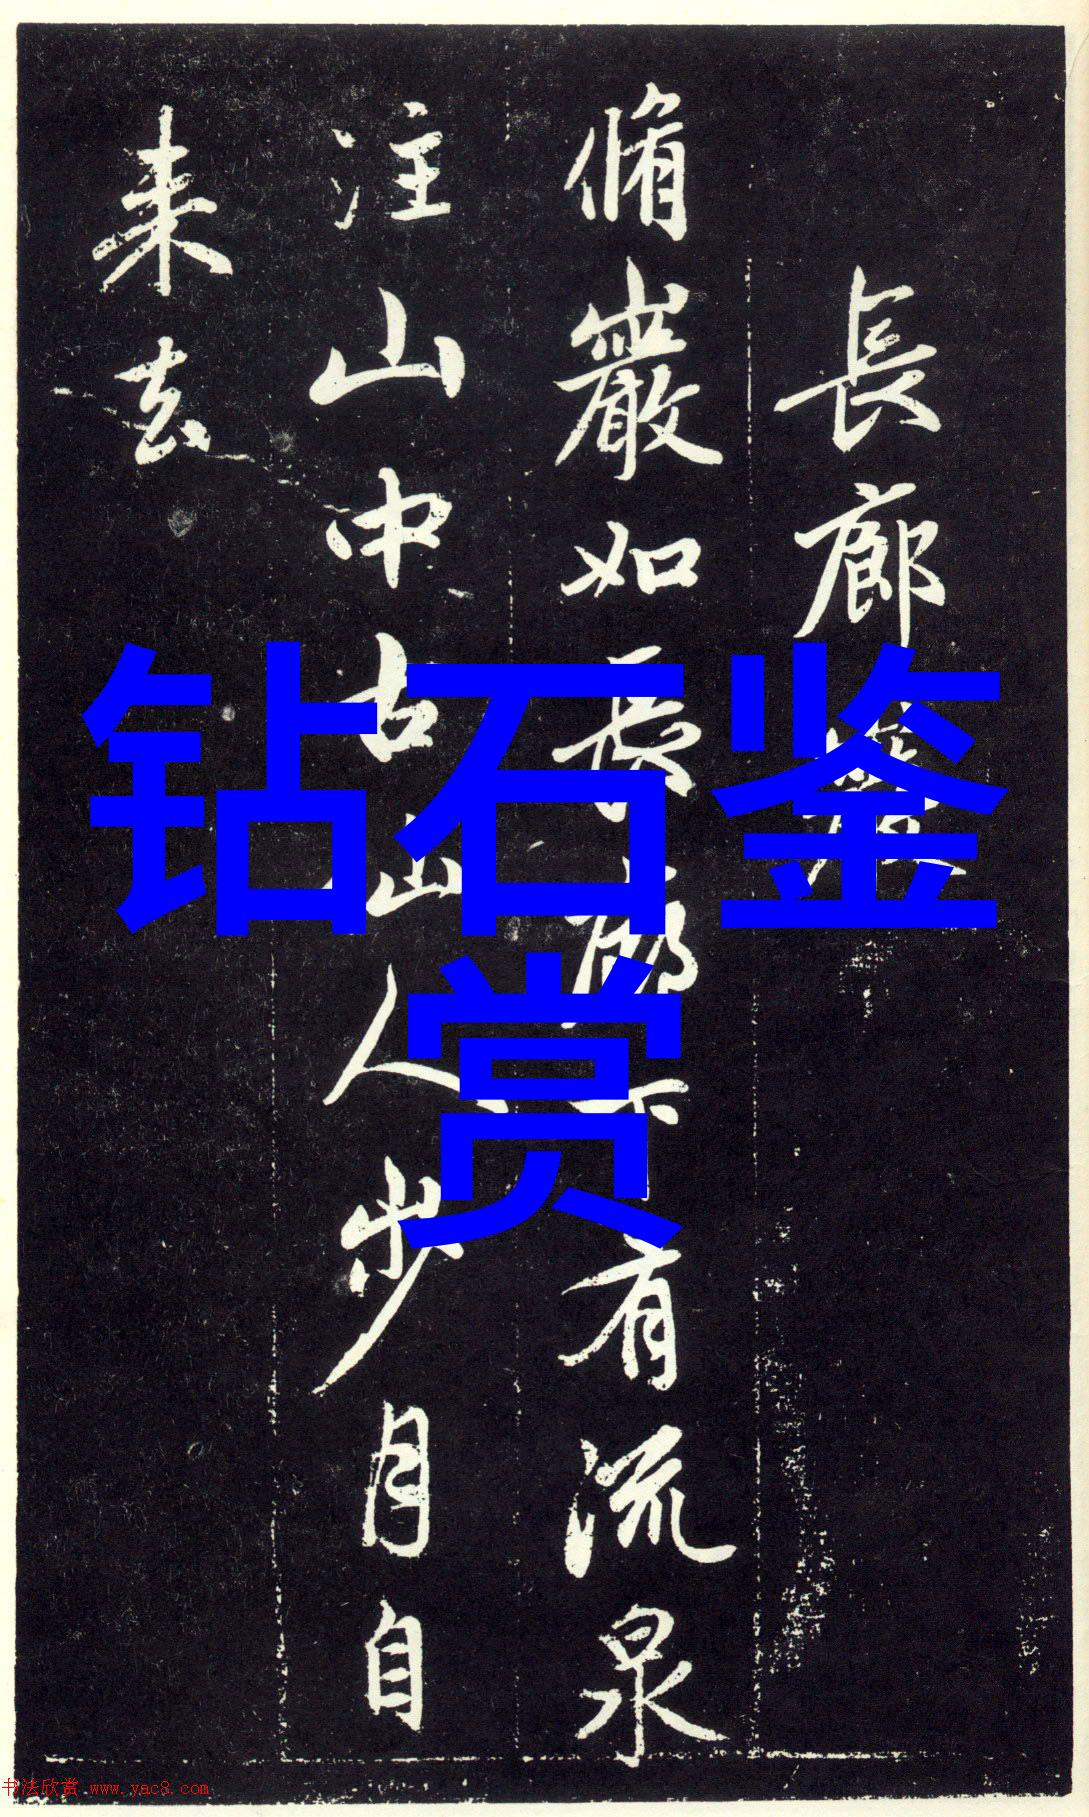 長廊
脩巖如長廊下有流泉
注山中古仙人步月自
来去
钻石鉴
赏
书法欣赏 www.yac8.com